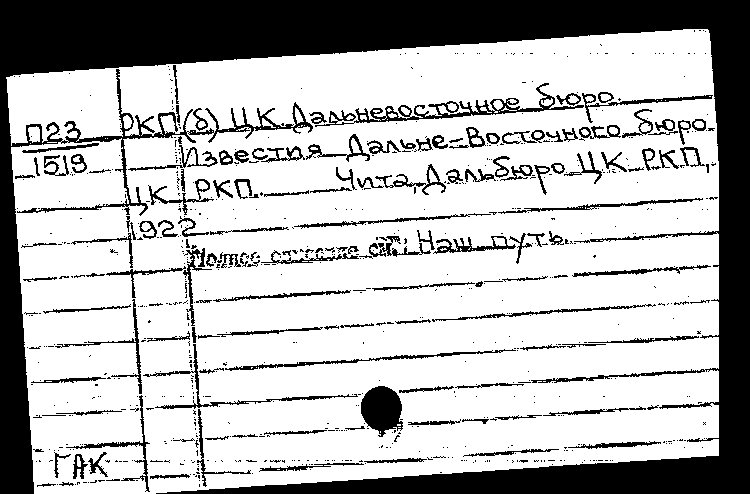 П23
1519
РКП(б) ЦК. Дальневосточное бюро.
Известия Дальне-Восточного бюро
ЦК РКП. Чита, Дальбюро ЦК РКП,
1922
Полное описание см.: Наш путь.
ГАК